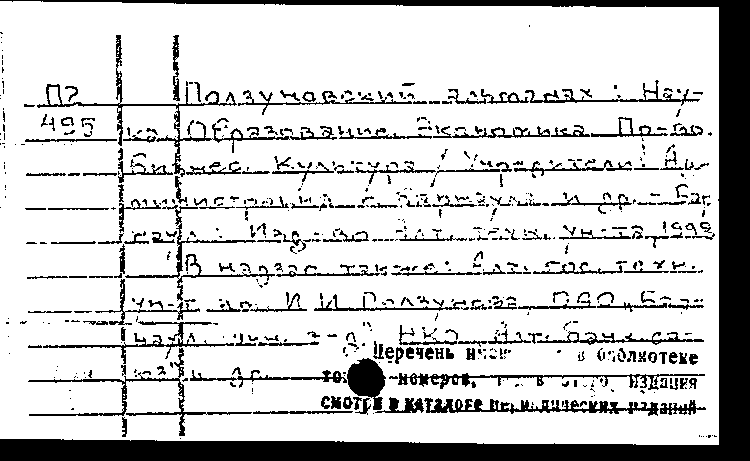 П2 Ползуновский альманах : Нау-
495 ка. Образование. Экономика. Пр-во.
Бизнес. Культура / Учредители: Ад-
министрация г. Барнаула и др. - Бар
наул : Изд-во Алт. техн. ун-та, 1998
В надзаг. также: Алт. гос. техн.
ун-т им. И И Ползунова, ОАО „Бар-
наул. з-д", НКО Алт. банк. со-
юз и др.
Перечень в библиотеке
номеров, издания
смотри в каталоге периодических изданий